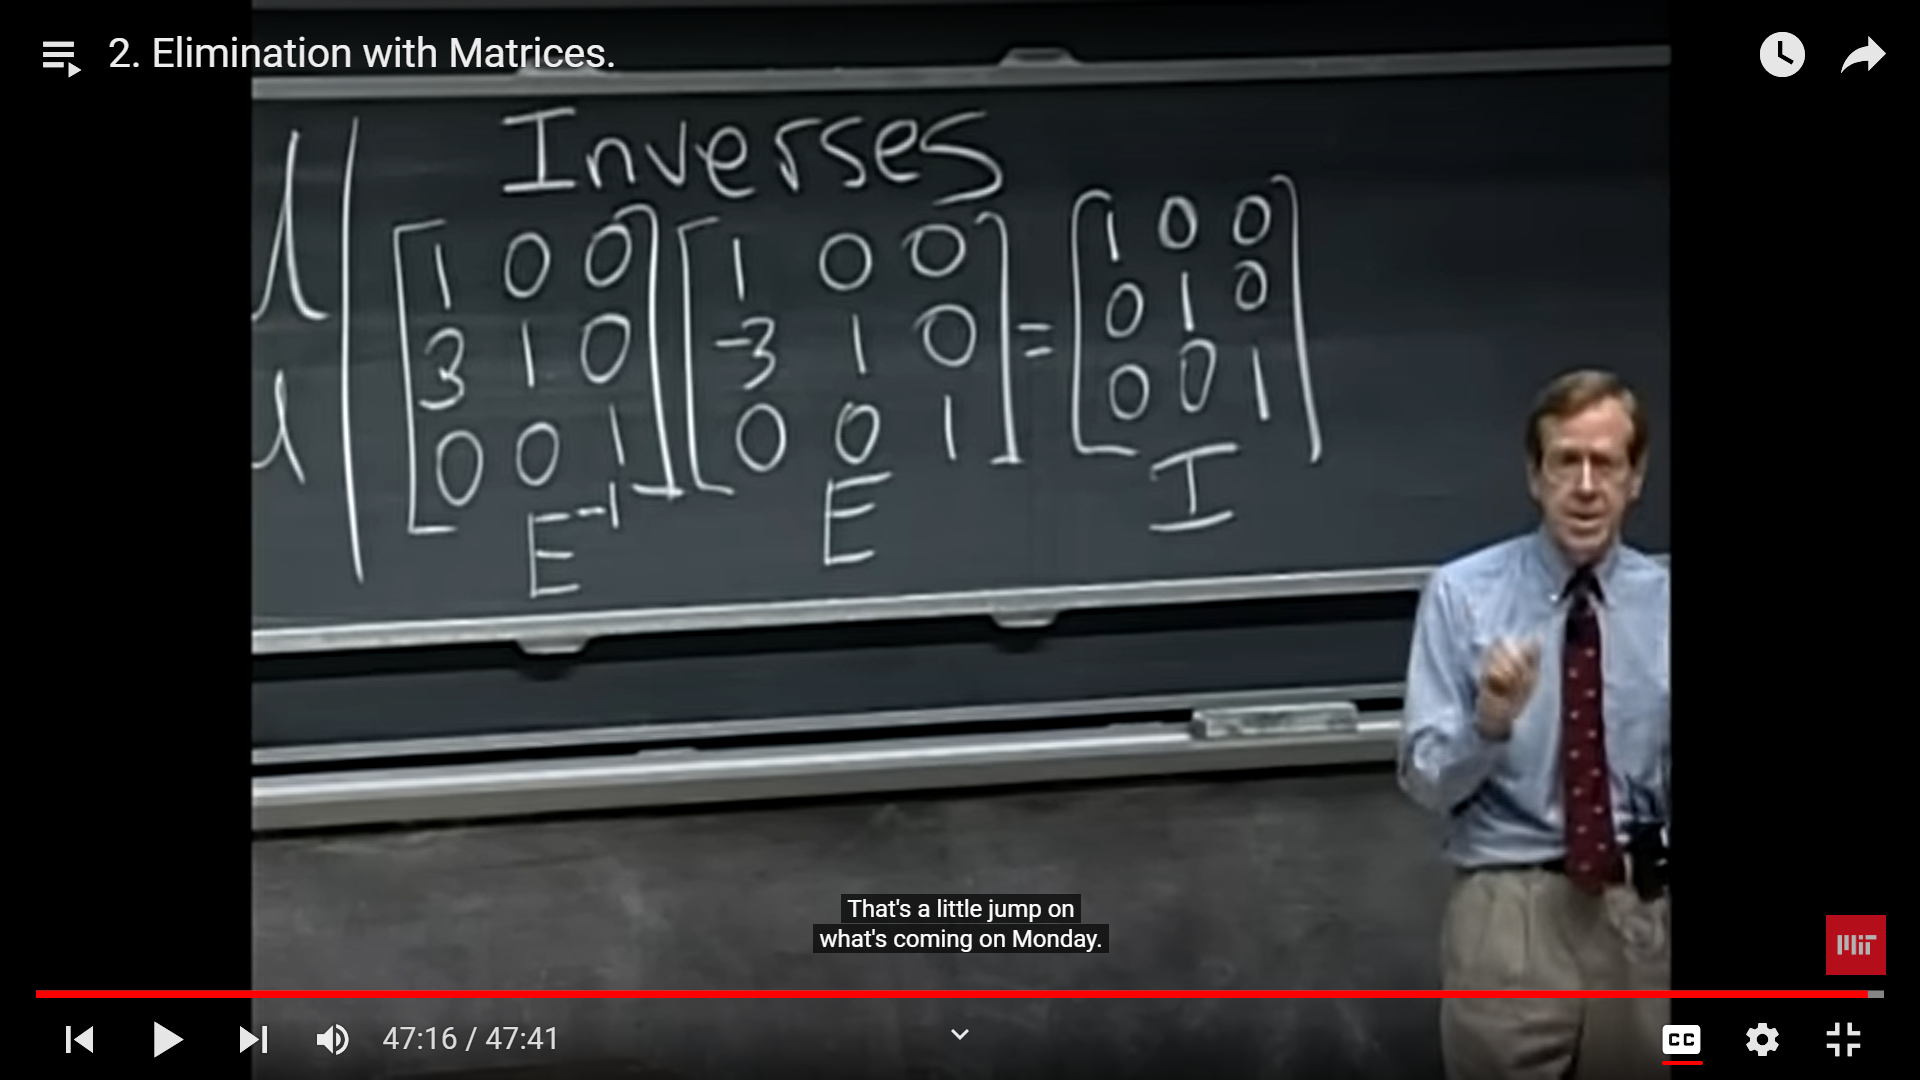 2. Elimination with Matrices.
Inverses
1 0 0 1 0 0 1 0 0
3 1 0 -3 1 0 = 0 1 0
0 0 1 0 0 1 0 0 1
E⁻¹ E I
That's a little jump on
what's coming on Monday.
MIT
47:16 / 47:41
CC